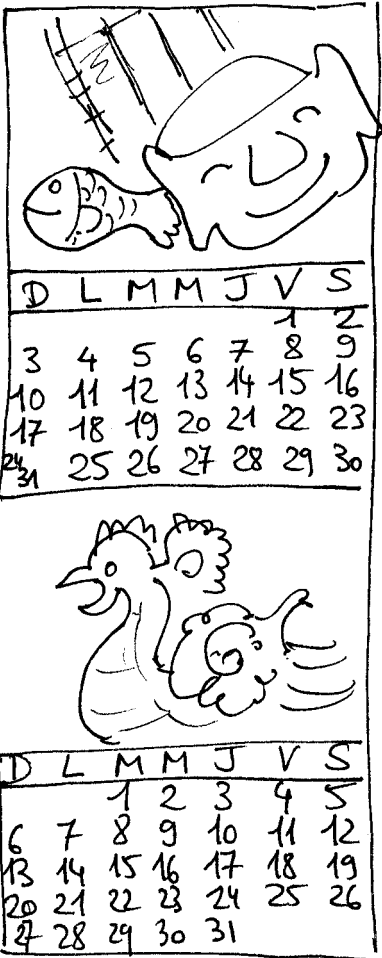 D L M M J V S
1 2
3 4 5 6 7 8 9
10 11 12 13 14 15 16
17 18 19 20 21 22 23
24 31 25 26 27 28 29 30
D L M M J V S
1 2 3 4 5
6 7 8 9 10 11 12
13 14 15 16 17 18 19
20 21 22 23 24 25 26
27 28 29 30 31